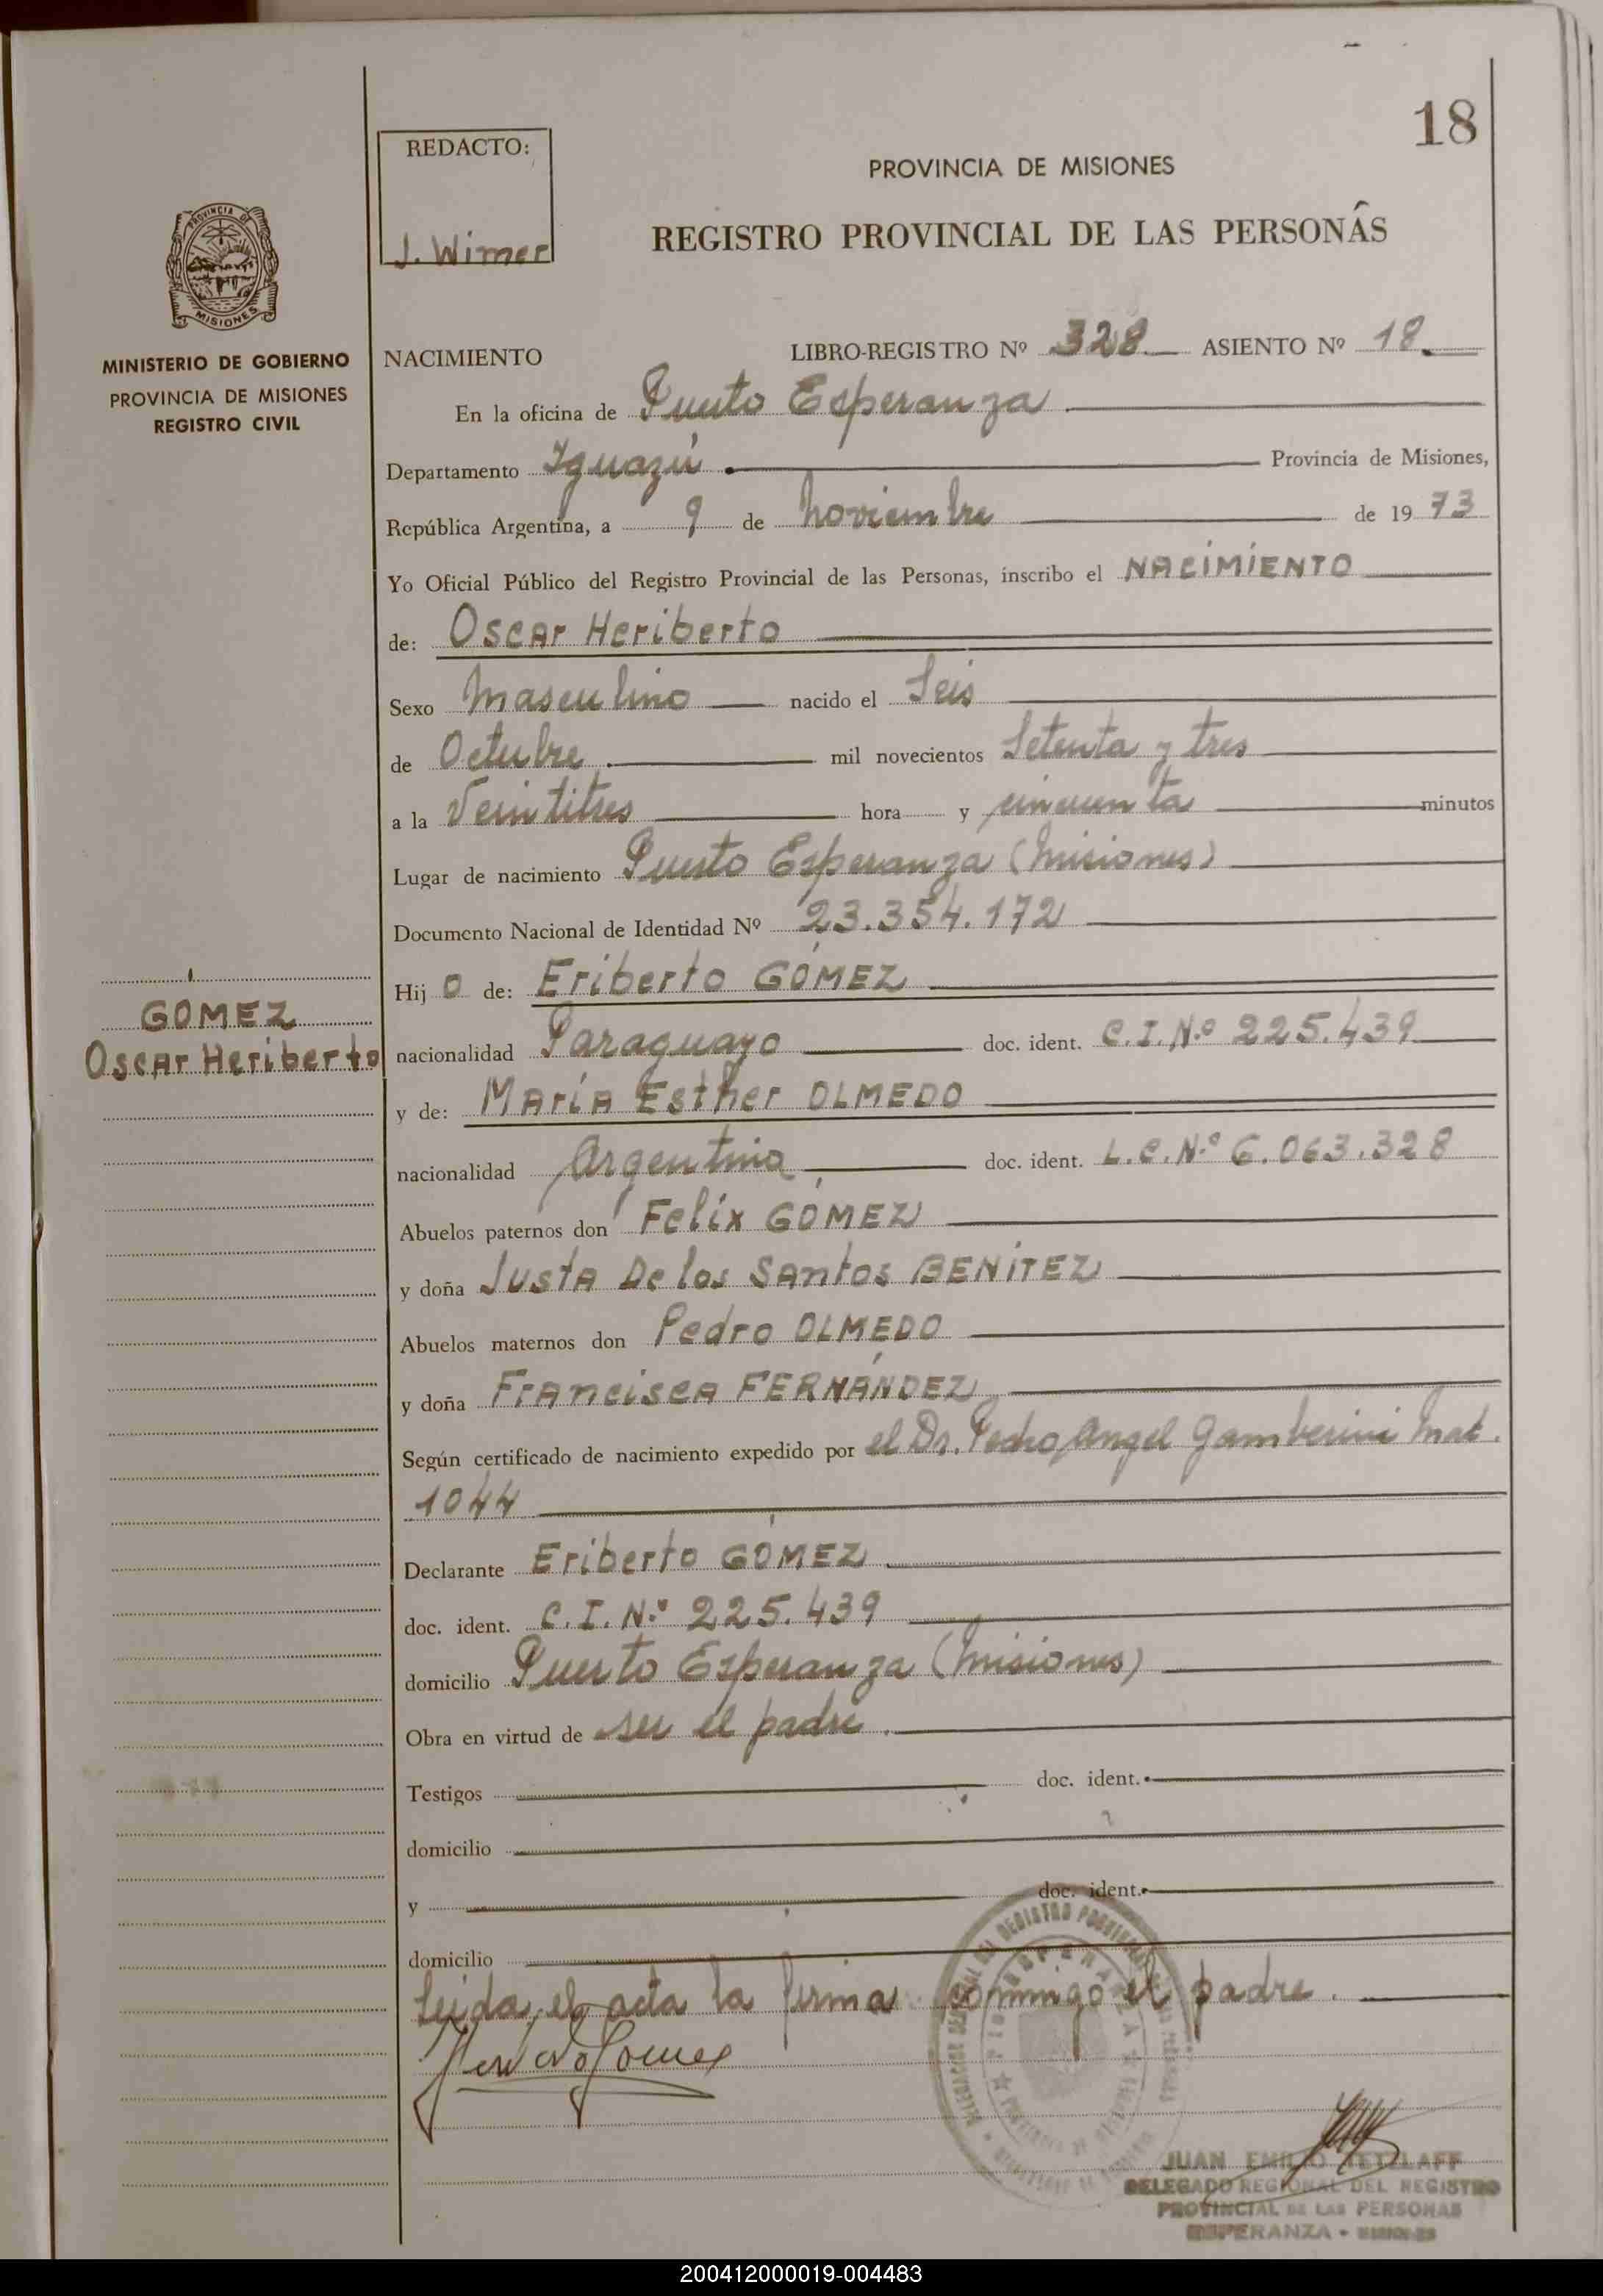 18
REDACTO:
J. Wimer
PROVINCIA DE MISIONES
REGISTRO PROVINCIAL DE LAS PERSONAS
PROVINCIA DE
MISIONES
MINISTERIO DE GOBIERNO
PROVINCIA DE MISIONES
REGISTRO CIVIL
NACIMIENTO LIBRO-REGISTRO Nº 328 ASIENTO Nº 18
En la oficina de Puerto Esperanza
Departamento Iguazú Provincia de Misiones,
República Argentina, a 9 de noviembre de 1973
Yo Oficial Público del Registro Provincial de las Personas, inscribo el NACIMIENTO
de: Oscar Heriberto
Sexo Masculino nacido el Seis
de Octubre mil novecientos Setenta y tres
a la Veintitres hora y cincuenta minutos
Lugar de nacimiento Puerto Esperanza (Misiones)
Documento Nacional de Identidad Nº 23.354.172
Hijo de: Eriberto GÓMEZ
GOMEZ
Oscar Heriberto
nacionalidad Paraguayo doc. ident. C.I.Nº 225.439
y de: María Esther OLMEDO
nacionalidad Argentina doc. ident. L.C.Nº 6.063.328
Abuelos paternos don Felix GÓMEZ
y doña Justa De los Santos BENITEZ
Abuelos maternos don Pedro OLMEDO
y doña Francisca FERNÁNDEZ
Según certificado de nacimiento expedido por el Dr. Pedro Angel Gamberini Mat.
1044
Declarante Eriberto GÓMEZ
doc. ident. C.I.Nº 225.439
domicilio Puerto Esperanza (Misiones)
Obra en virtud de ser el padre.
Testigos doc. ident.
domicilio
y doc. ident.
domicilio
Leida el acta la firma conmigo el padre.
DELEGADO REGIONAL DEL REGISTRO
PROVINCIAL DE LAS PERSONAS
ESPERANZA - MISIONES
200412000019-004483